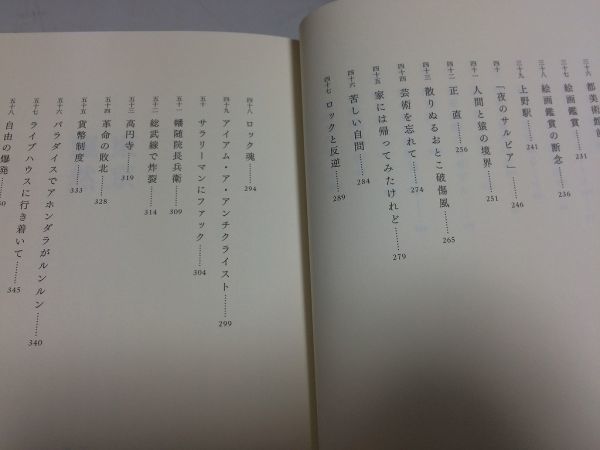 三十六 都美術館前
三十七 絵画鑑賞………231
三十八 絵画鑑賞の断念………236
三十九 上野駅………241
四十 「夜のサルビア」………246
四十一 人間と猿の境界………251
四十二 正直………256
四十三 散りぬるおとこ破傷風………265
四十四 芸術を忘れて………274
四十五 家には帰ってみたけれど………279
四十六 苦しい自問………284
四十七 ロックと反逆………289
四十八 ロック魂………294
四十九 アイアム・ア・アンチクライスト………299
五十 サラリーマンにファック………304
五十一 幡随院長兵衛………309
五十二 総武線で炸裂………314
五十三 高円寺………319
五十四 革命の敗北………328
五十五 貨幣制度………333
五十六 パラダイスでアホンダラがルンルン………340
五十七 ライブハウスに行き着いて………345
五十八 自由の爆発